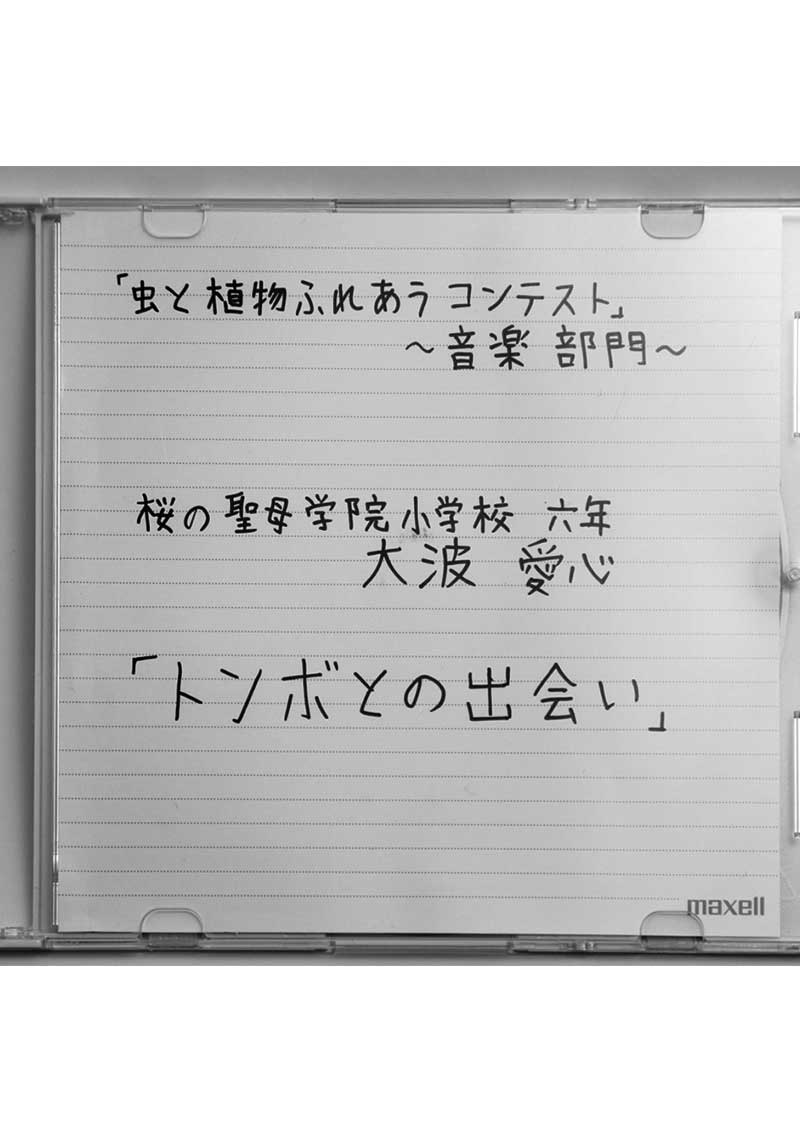 「虫と植物ふれあうコンテスト」
～音楽 部門～
桜の聖母学院小学校 六年
大波 愛心
「トンボとの出会い」
maxell